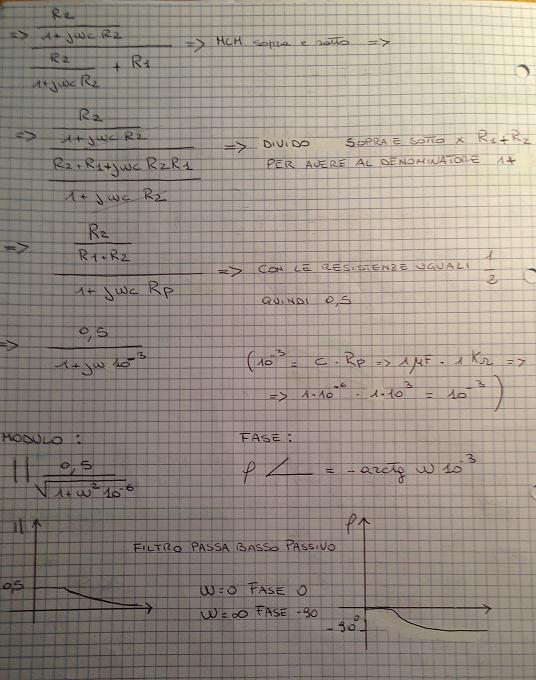 => R2 / (1+jωc R2) / (R2 / (1+jωc R2) + R1) => MCM sopra e sotto =>
=> R2 / (1+jωc R2) / ((R2+R1+jωc R2R1) / (1+jωc R2)) => DIVIDO SOPRA E SOTTO x R1+R2
PER AVERE AL DENOMINATORE 1+
=> (R2 / (R1+R2)) / (1+jωc Rp) => CON LE RESISTENZE UGUALI 1/2
QUINDI 0,5
=> 0,5 / (1+jω 10^-3) (10^-3 = C · Rp => 1μF · 1 KΩ =>
=> 1·10^-6 · 1·10^3 = 10^-3)
MODULO : FASE :
|| 0,5 / √(1+ω² 10^-6) φ∠ = -arctg ω 10^-3
|| φ
FILTRO PASSA BASSO PASSIVO
0,5 ω=0 FASE 0
ω=∞ FASE -90
-90°